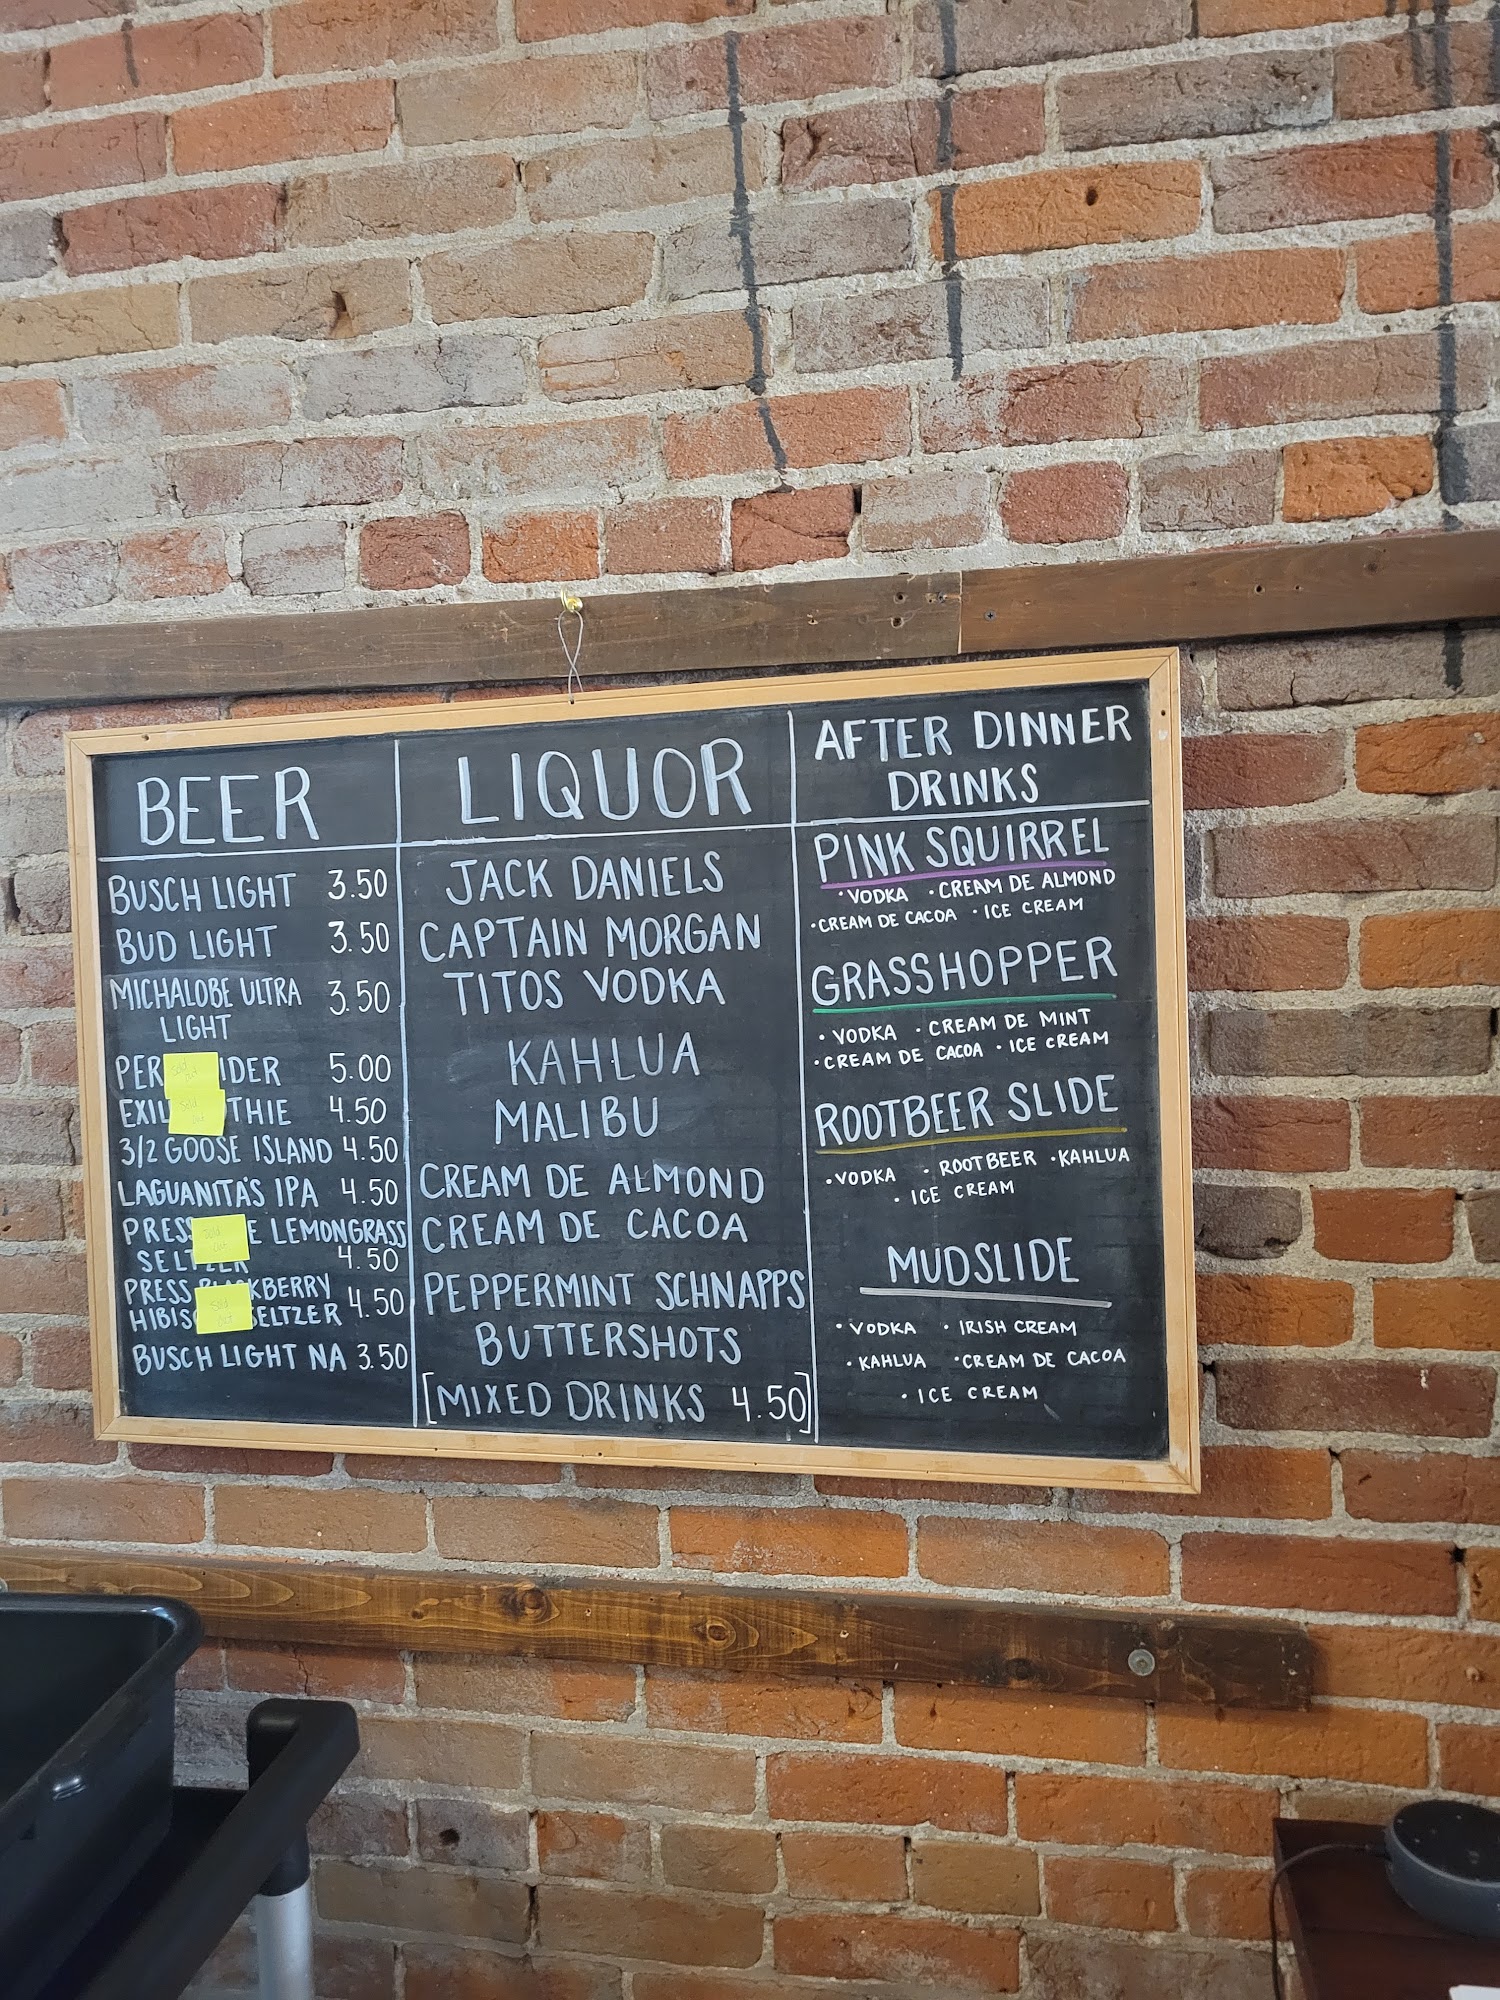 BEER
BUSCH LIGHT 3.50
BUD LIGHT 3.50
MICHALOBE ULTRA 3.50
LIGHT
PER IDER 5.00
Sold Out
EXIL THIE 4.50
Sold Out
3/2 GOOSE ISLAND 4.50
LAGUANITA'S IPA 4.50
PRESS E LEMONGRASS
SELTZER 4.50
Sold Out
PRESS BLACKBERRY
HIBISC SELTZER 4.50
Sold Out
BUSCH LIGHT NA 3.50
LIQUOR
JACK DANIELS
CAPTAIN MORGAN
TITOS VODKA
KAHLUA
MALIBU
CREAM DE ALMOND
CREAM DE CACOA
PEPPERMINT SCHNAPPS
BUTTERSHOTS
[MIXED DRINKS 4.50]
AFTER DINNER
DRINKS
PINK SQUIRREL
• VODKA • CREAM DE ALMOND
• CREAM DE CACOA • ICE CREAM
GRASSHOPPER
• VODKA • CREAM DE MINT
• CREAM DE CACOA • ICE CREAM
ROOTBEER SLIDE
• VODKA • ROOTBEER • KAHLUA
• ICE CREAM
MUDSLIDE
• VODKA • IRISH CREAM
• KAHLUA • CREAM DE CACOA
• ICE CREAM